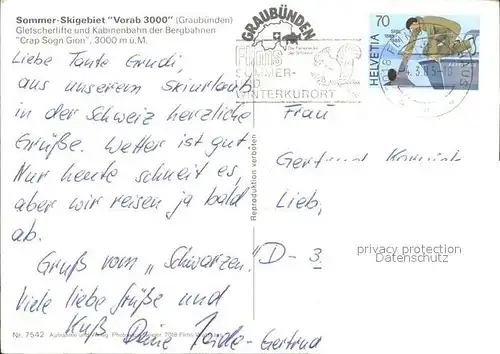 Sommer-Skigebiet "Vorab 3000" (Graubünden)
Gletscherlifte und Kabinenbahn der Bergbahnen
"Crap Sogn Gion", 3000 m ü.M.
GRAUBÜNDEN
Flims
SOMMER-
WINTERKURORT
70
HELVETIA
Liebe Tante Grudi,
aus unserem Skiurlaub
in der Schweiz herzliche
Grüße. Wetter ist gut
Nur heute schneit es,
aber wir reisen ja bald
ab.
Gruß vom "Schwarzen."
Viele liebe Grüße und
Kuß Deine
Gertrud
Frau
Lieb,
D-3
privacy protection
Datenschutz
Reproduktion verboten
Nr. 7542 Aufnahme und Verlag